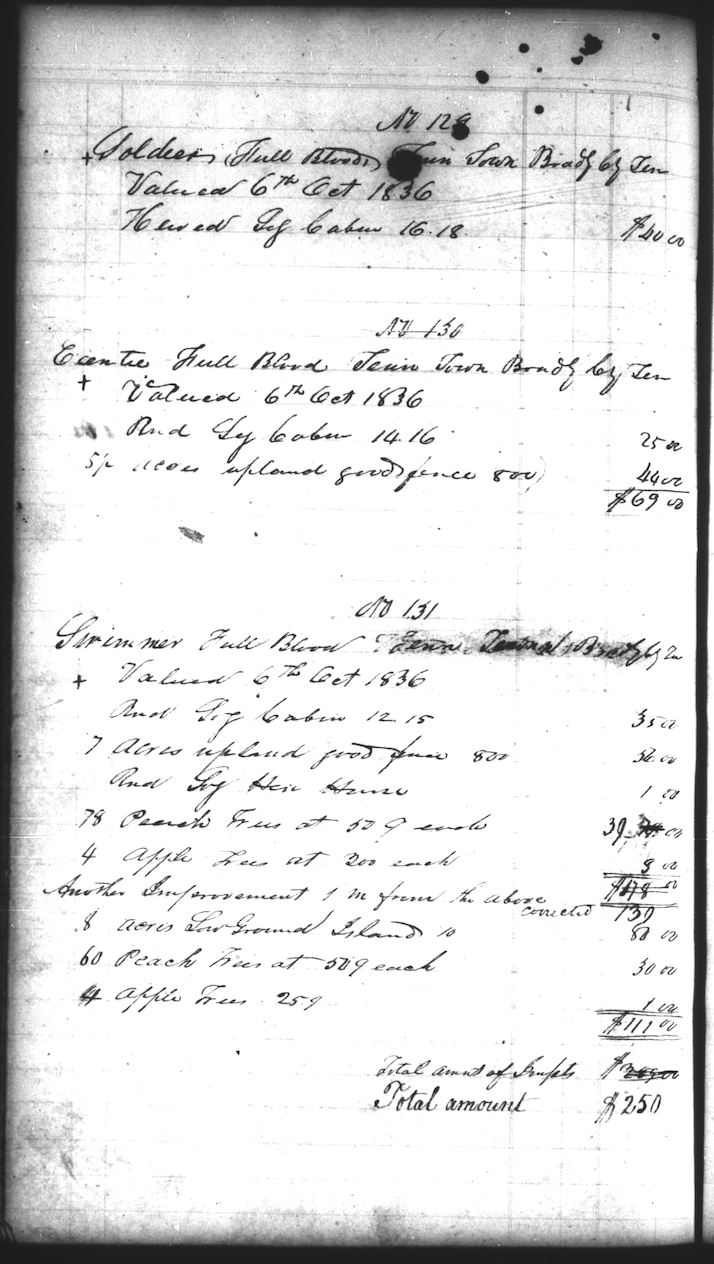 No 129
+ Soldier (Full Blood) Tenn Town Bradly Cty Ten
Valued 6th Oct 1836
Hewed Log Cabin 16.18 $40 00
No 130
Full Blood Tenn Town Bradly Cty Ten
+ Valued 6th Oct 1836
Rnd Log Cabin 14.16 25 00
5½ acres upland good (fence 800) 44 00
$69 00
No 131
Swimmer Full Blood Tenn Bradly Cty Ten
+ Valued 6th Oct 1836
Rnd Log Cabin 12 15 35 00
7 Acres upland good fence 800 56 00
Rnd Log Hen House 1 00
78 Peach Trees at 50 ¢ each 39 00
4 Apple Trees at 200 each 8 00
Another Improvement 1 m from the above $178 00
corrected 139
8 acres Low Ground Island 10 80 00
60 Peach Trees at 50 ¢ each 30 00
4 Apple Trees 25 ¢ 1 00
$111 00
Total amnt of Impts
Total amount $250